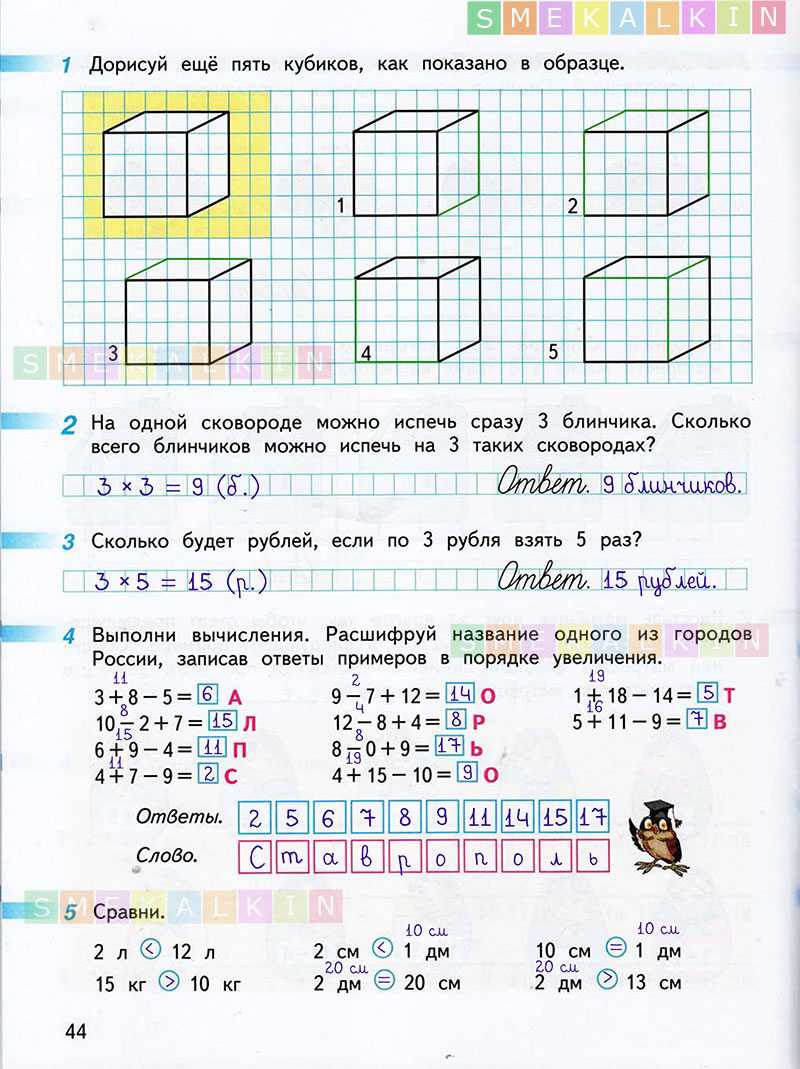 SMEKALKIN
1 Дорисуй ещё пять кубиков, как показано в образце.
1 2
3 4 5
SMEKALKIN
2 На одной сковороде можно испечь сразу 3 блинчика. Сколько
всего блинчиков можно испечь на 3 таких сковородах?
3 × 3 = 9 (б.) Ответ. 9 блинчиков.
3 Сколько будет рублей, если по 3 рубля взять 5 раз?
3 × 5 = 15 (р.) Ответ. 15 рублей.
SMEKALKIN
4 Выполни вычисления. Расшифруй название одного из городов
России, записав ответы примеров в порядке увеличения.
11 2 19
3 + 8 − 5 = 6 А 9 − 7 + 12 = 14 О 1 + 18 − 14 = 5 Т
8 4 16
10 − 2 + 7 = 15 Л 12 − 8 + 4 = 8 Р 5 + 11 − 9 = 7 В
15 8
6 + 9 − 4 = 11 П 8 − 0 + 9 = 17 Ь
11 19
4 + 7 − 9 = 2 С 4 + 15 − 10 = 9 О
Ответы. 2 5 6 7 8 9 11 14 15 17
Слово. С т а в р о п о л ь
SMEKALKIN
5 Сравни.
10 см 10 см
2 л < 12 л 2 см < 1 дм 10 см = 1 дм
20 см 20 см
15 кг > 10 кг 2 дм = 20 см 2 дм > 13 см
44